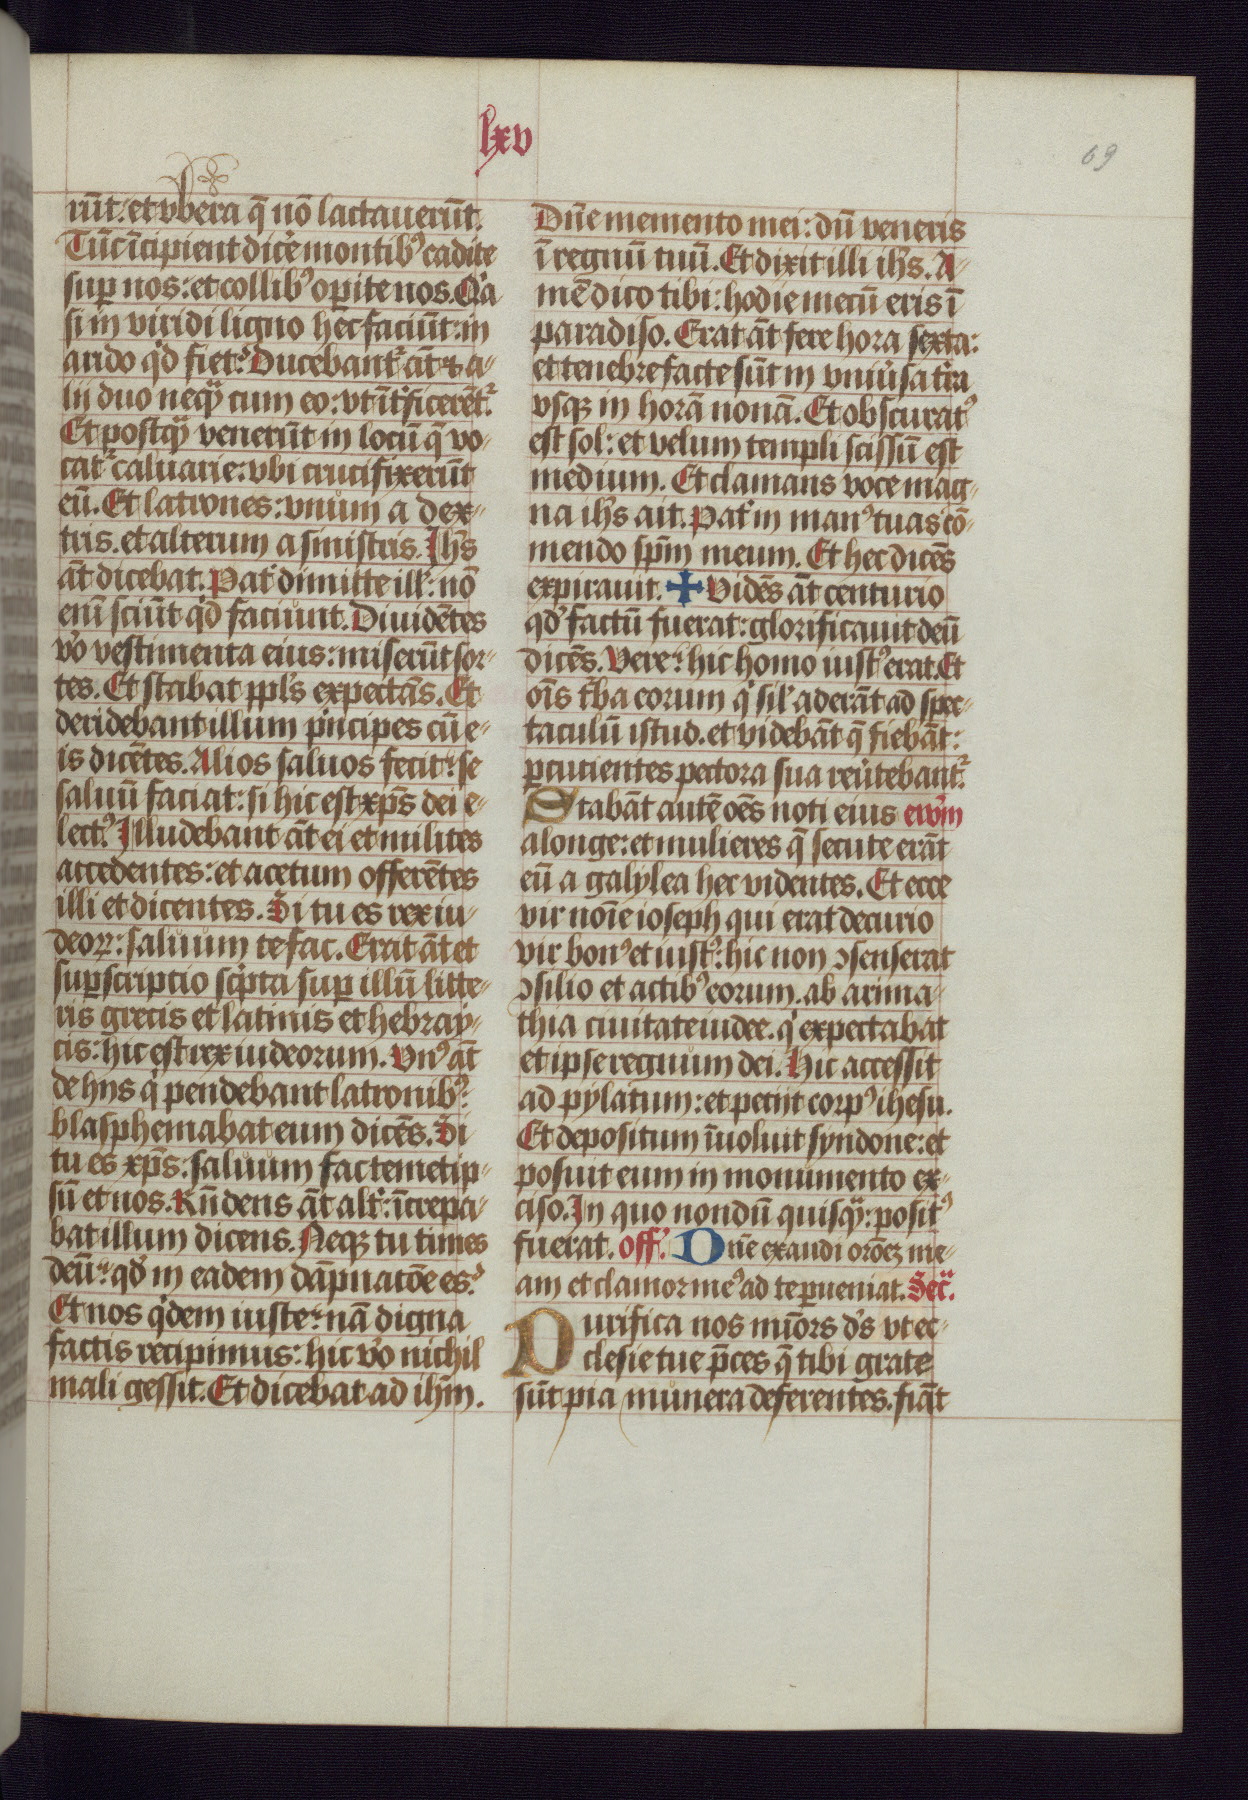 lxv
69
rūt: et vbera q̄ nō lactauerūt.
Tūc īcipient dicẻ montibꝰ cadite
suꝑ nos: et collibꝰ oꝑite nos. Qͥa
si in viridi ligno hec faciūt: in
arido qͥd fiet? Ducebantᷣ āt ⁊ a-
lii duo neqͣꝫ cum eo: vt īt͛ficerētᷣ.
Et postqͣꝫ venerūt in locū q̄ vo-
catᷣ caluarie: vbi crucifixerūt
eū. Et latrones: vnum a dex-
tris. et alterum a sinistris. Ih̄s
āt dicebat. Pat͛ dimitte ill̓: nō
enī sciūt qͥd faciunt. Diuidētes
vͦo vestimenta eius: miserūt sor-
tes. Et stabat ppl̓s expectās. Et
deridebant illum pͥncipes cū e-
is dicētes. Alios saluos fecit: se
saluū faciat: si hic est xp̄s dei e-
lectꝰ. Illudebant āt ei et milites
accedentes: et acetum offerētes
illi et dicentes. Si tu es rex iu-
deoꝝ: saluum te fac. Erat āt et
suꝑscriptio scͥpta suꝑ illū litte-
ris grecis et latinis et hebray-
cis: hic est rex iudeorum. Vnꝰ āt
de hijs qͥ pendebant latronibꝰ:
blasphemabat eum dicēs. Si
tu es xp̄s: saluum fac temetip-
sū et nos. Rn̄dens āt alt͛: īcrepa-
bat illum dicens. Neqꝫ tu times
deū: qd̓ in eadem dāpnatōe es?
Et nos qͥdem iuste: nā digna
factis recipimus: hic vͦo nichil
mali gessit. Et dicebat ad ih̄m.
Dn̄e memento mei: dū veneris
ī regnū tuū. Et dixit illi ih̄s. A-
mē dico tibi: hodie mecū eris ī
paradiso. Erat āt fere hora sexta:
et tenebre facte sūt in vniu͛sa t͛ra
vsqꝫ in horā nonā. Et obscuratꝰ
est sol: et velum templi scissū est
medium. Et clamans voce mag-
na ih̄s ait. Pat͛ in manꝰ tuas cō-
mendo sp̄m meum. Et hec dicēs
expirauit. ✠ Vidēs āt centurio
qd̓ factū fuerat: glorificauit deū
dicēs. Vere: hic homo iustꝰ erat. Et
oīs t͛ba eorum qͥ sil̓ aderāt ad spec-
taculū istud. et videbāt q̄ fiebāt:
ꝑcutientes pectora sua reu͛tebantᷣ.
Stabāt autē oēs noti eius ewm̄
a longe: et mulieres q̄ secute erāt
eū a galylea hec videntes. Et ecce
vir noīe ioseph qui erat decurio
vir bonꝰ et iustꝰ: hic non ↄsenserat
ↄsilio et actibꝰ eorum. ab arima-
thia ciuitate iudee. qͥ expectabat
et ipse regnum dei. Hic accessit
ad pylatum: et petijt corpꝰ ihesu.
Et depositum īuoluit syndone: et
posuit eum in monumento ex-
ciso. In quo nondū quisqͣꝫ: positꝰ
fuerat. off̄. Dn̄e exaudi orōeꝫ me-
am et clamor meꝰ ad te ꝑueniat. Sec̄.
Purifica nos mīors dˢ vt ec-
clesie tue p̄ces q̄ tibi grate
sūt pia munera deferentes. fiāt